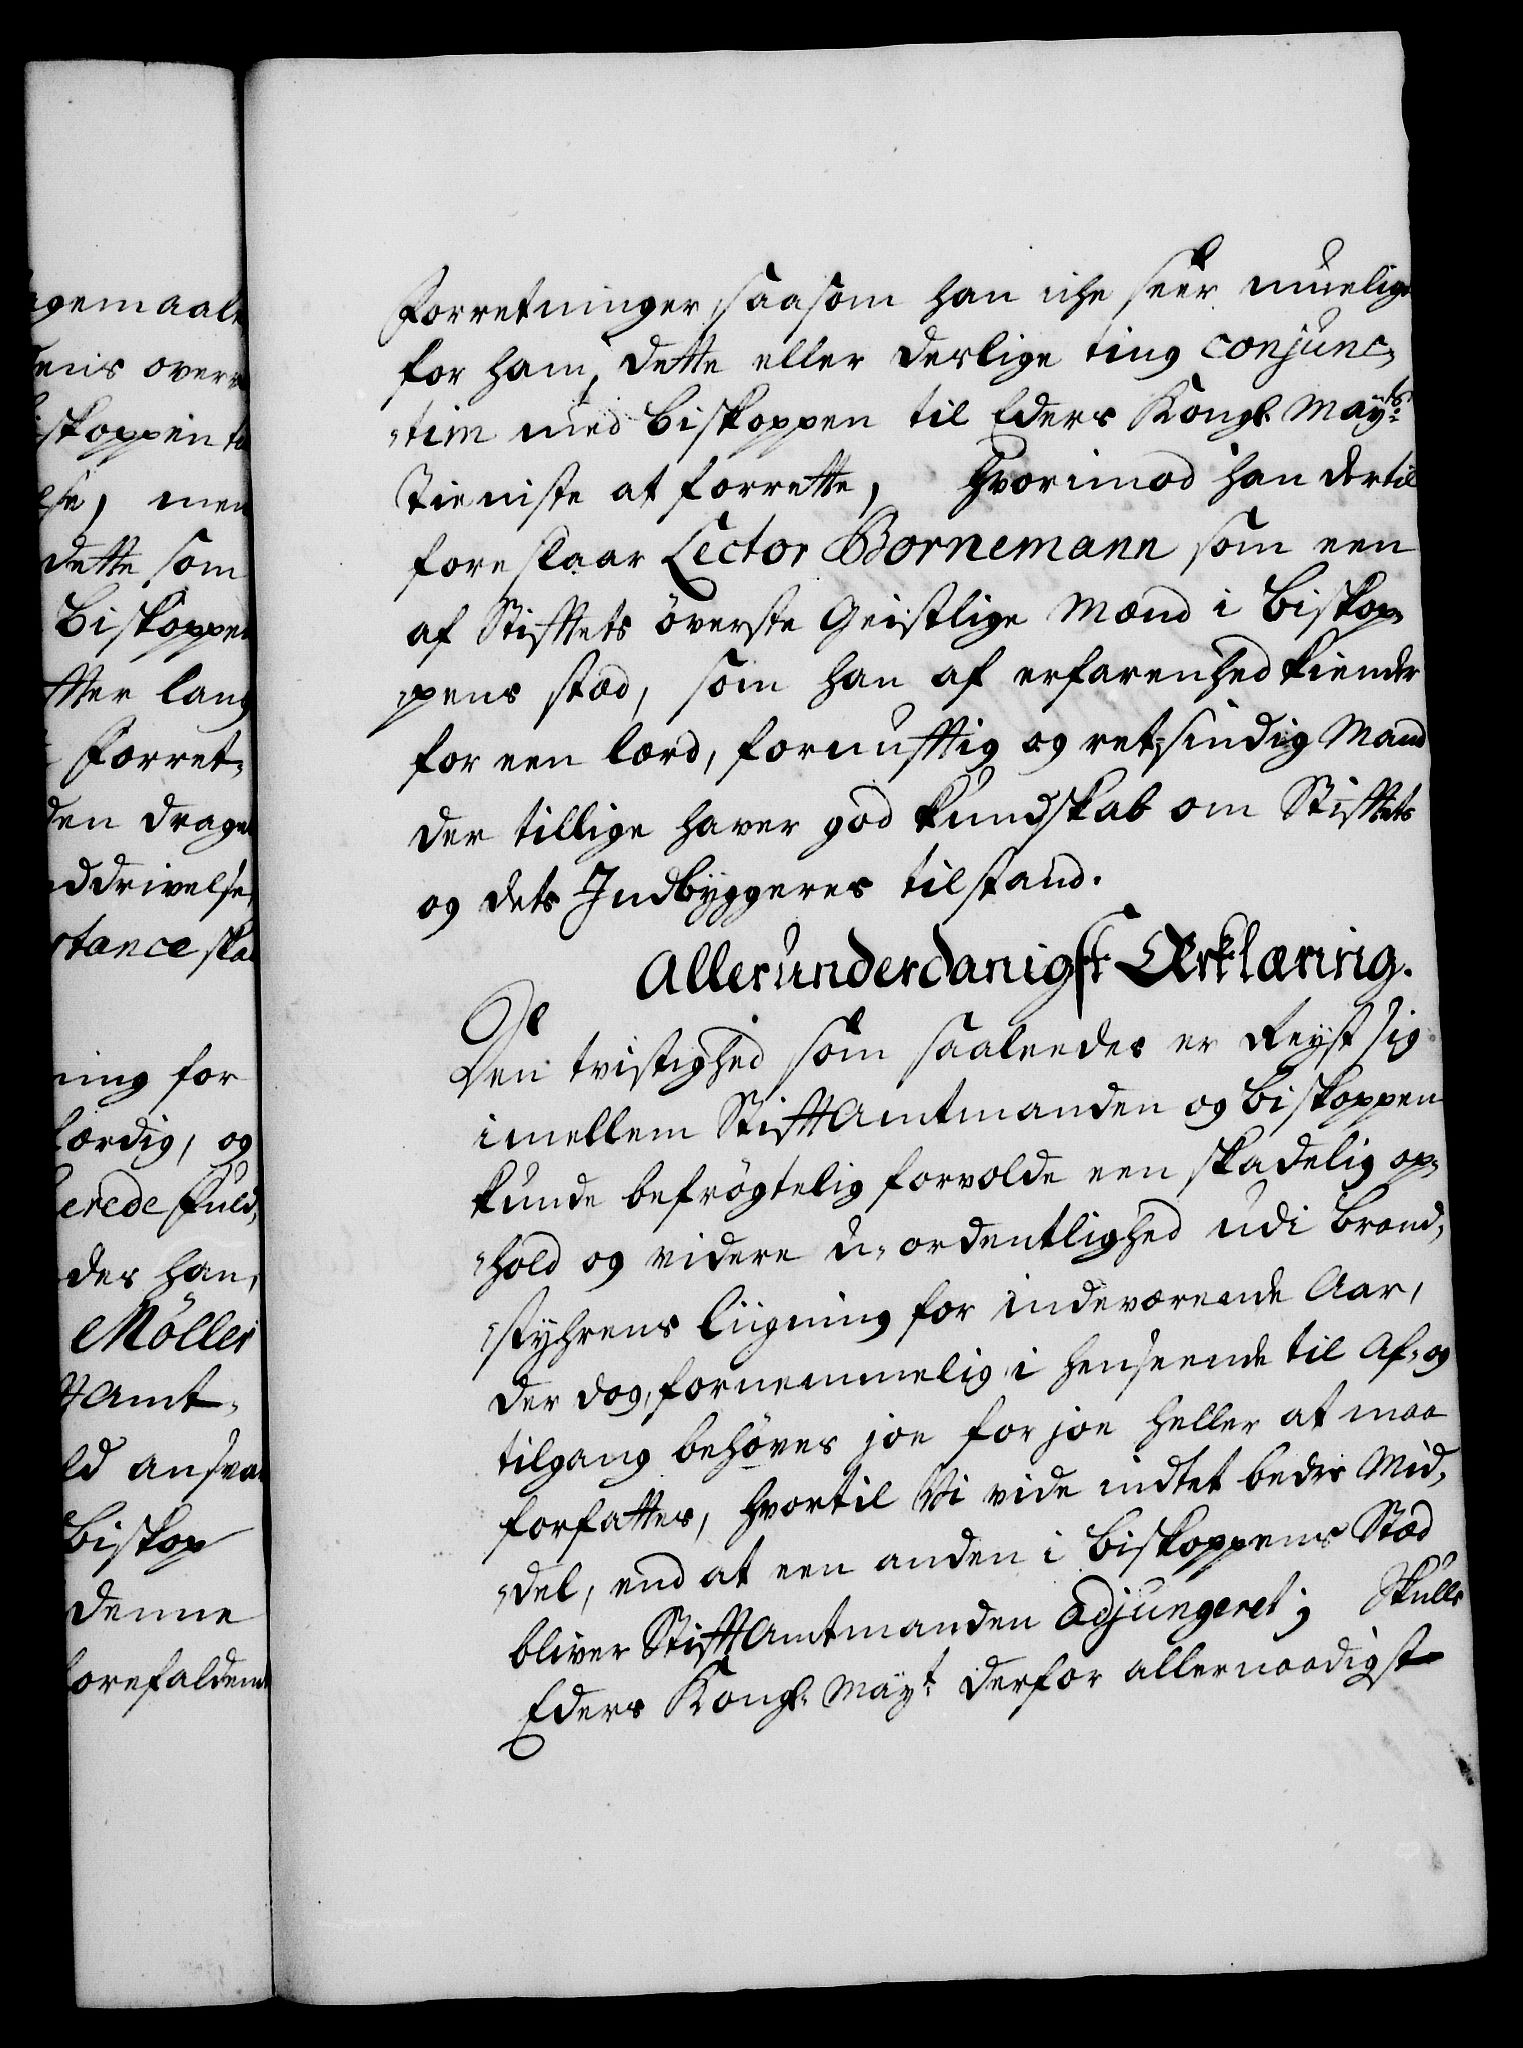 agemaale
ens over
iskoppen to
lse, men
dette som
Biskoppen
tter lang
Forret-
den drage
nddrivelse,
stance ska
ning for
færdig, og
erede fuld,
des han,
Møller
tAmt-
ld ansva
Biskop
denne
forefaldend
Forretninger, saasom han iche seer muelig
for ham, dette eller derlige ting conjunc-
-tim med Biskoppen til Eders Kongl. Mayts.
Tieniste at forrette, hvorimod han dertil
foreslaar Lector Bornemann som een
af Stifftets överste Geistlige Mænd i Biskop-
-pens stæd, som han af erfarenhed kiender
for een lærd, fornufftig og ret-sindig Mand
der tillige haver god kundskab om Stifftets
og dets Indbyggeres tilstand.
Allerunderdanigst Erklæring.
Den tvistighed som saaleedes er Reyst sig
imellem StifftAmtmanden og Biskoppen
kunde befrögtelig forvolde een skadelig op-
-hold og videre u-ordentlighed udi Brand-
-styhrens liigning for indeværende Aar,
der dog, fornemmelig i henseende til Af- og
tilgang behøves joe for joe heller at maa
forfattes, hvortil Vi vide indtet bedre Mid-
-del, end at een anden i Biskoppens Stæd
bliver StifftAmtmanden adjungeret; Skulle
Eders Kongl. Mayt. derfor allernaadigst